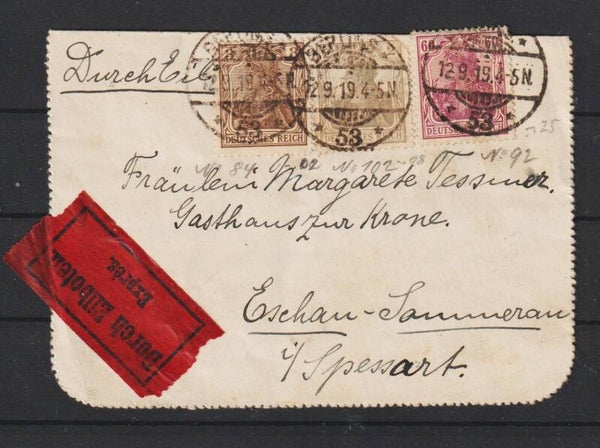 Durch Eil
BERLIN
12.9.19.4-5N
* 53 *
BERLIN
12.9.19.4-5N
* 53 *
12.9.19.4-5N
* 53 *
3 3
DEUTSCHES REICH
60
DEUTSCHES
No 84
02
No 102
98
No 92
25
Fräulein Margarete Tessmer.
Gasthaus zur Krone.
Eschau-Sommerau
i/Spessart.
Durch Eilboten
Exprès.